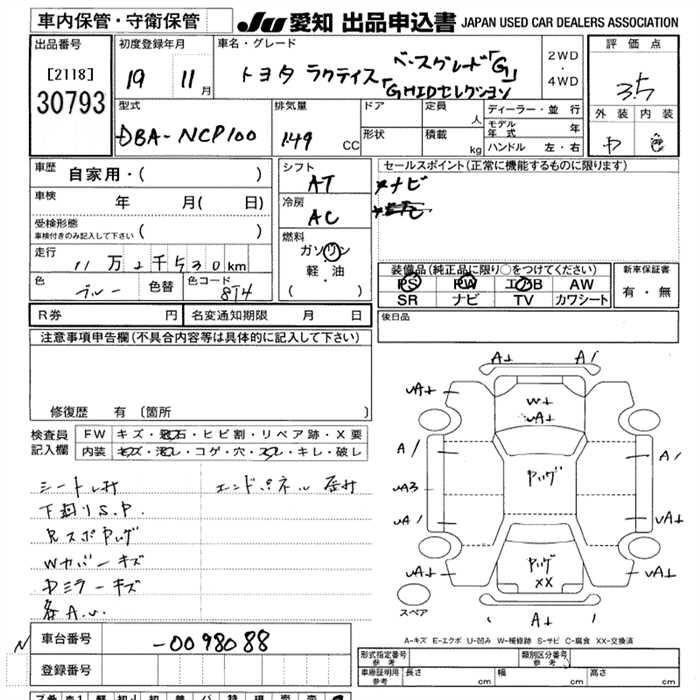 車内保管・守衛保管
JU 愛知 出品申込書 JAPAN USED CAR DEALERS ASSOCIATION
出品番号
[2118]
30793
初度登録年月
19 11月
車名・グレード
トヨタ ラクティス
ベースグレード「G」
「G HIDセレクション
2WD
・
4WD
評価点
3.5
外装 内装
型式
DBA-NCP100
排気量
149 CC
ドア
形状
定員 人
積載 kg
ディーラー・並行
モデル年式 年
ハンドル 左・右
車歴
自家用・( )
車検
年 月( 日)
受検形態
車検付きのみ記入して下さい ( )
走行
11万2千530km
色
ブルー
色替
色コード
8T4
シフト
AT
冷房
AC
燃料
ガソリン
軽・油
( ・ )
セールスポイント(正常に機能するものに限ります)
ナビ
装備品(純正品に限り○をつけてください)
PS PW エアB AW
SR ナビ TV カワシート
新車保証書
有・無
R券 円
名変通知期限 月 日
後日品
注意事項申告欄(不具合内容等は具体的に記入して下さい)
修復歴 有 〔箇所 〕
検査員記入欄
FW キズ・飛石・ヒビ割・リペア跡・X要
内装 キズ・汚レ・コゲ・穴・スレ・キレ・破レ
下廻りS.P.
Wカバーキズ
Dミラーキズ
各A.U.
A↓ A/
uA↓ uA↓
W↓
uA↓
A/ A/
uA3
uA/ uA↓
uA↓ uA↓
XX
A↓
スペア
A-キズ E-エクボ U-凹み W-補修跡 S-サビ C-腐食 XX-交換済
N
車台番号
-0098088
登録番号
形式指定番号
参考
類別区分番号
参考
車庫証明用
参考
長さ cm
幅 cm
高さ cm